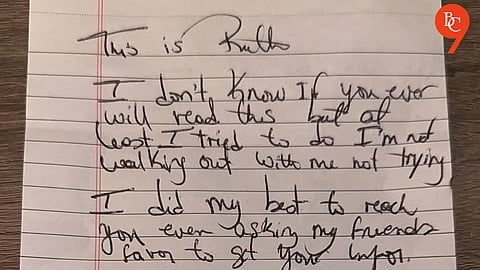 BC
This is Ruth
I don't know If you ever
will read this but at
least I tried to do I'm not
walking out with me not trying
I did my best to reach
you even asking my friends
favor to get your infor.